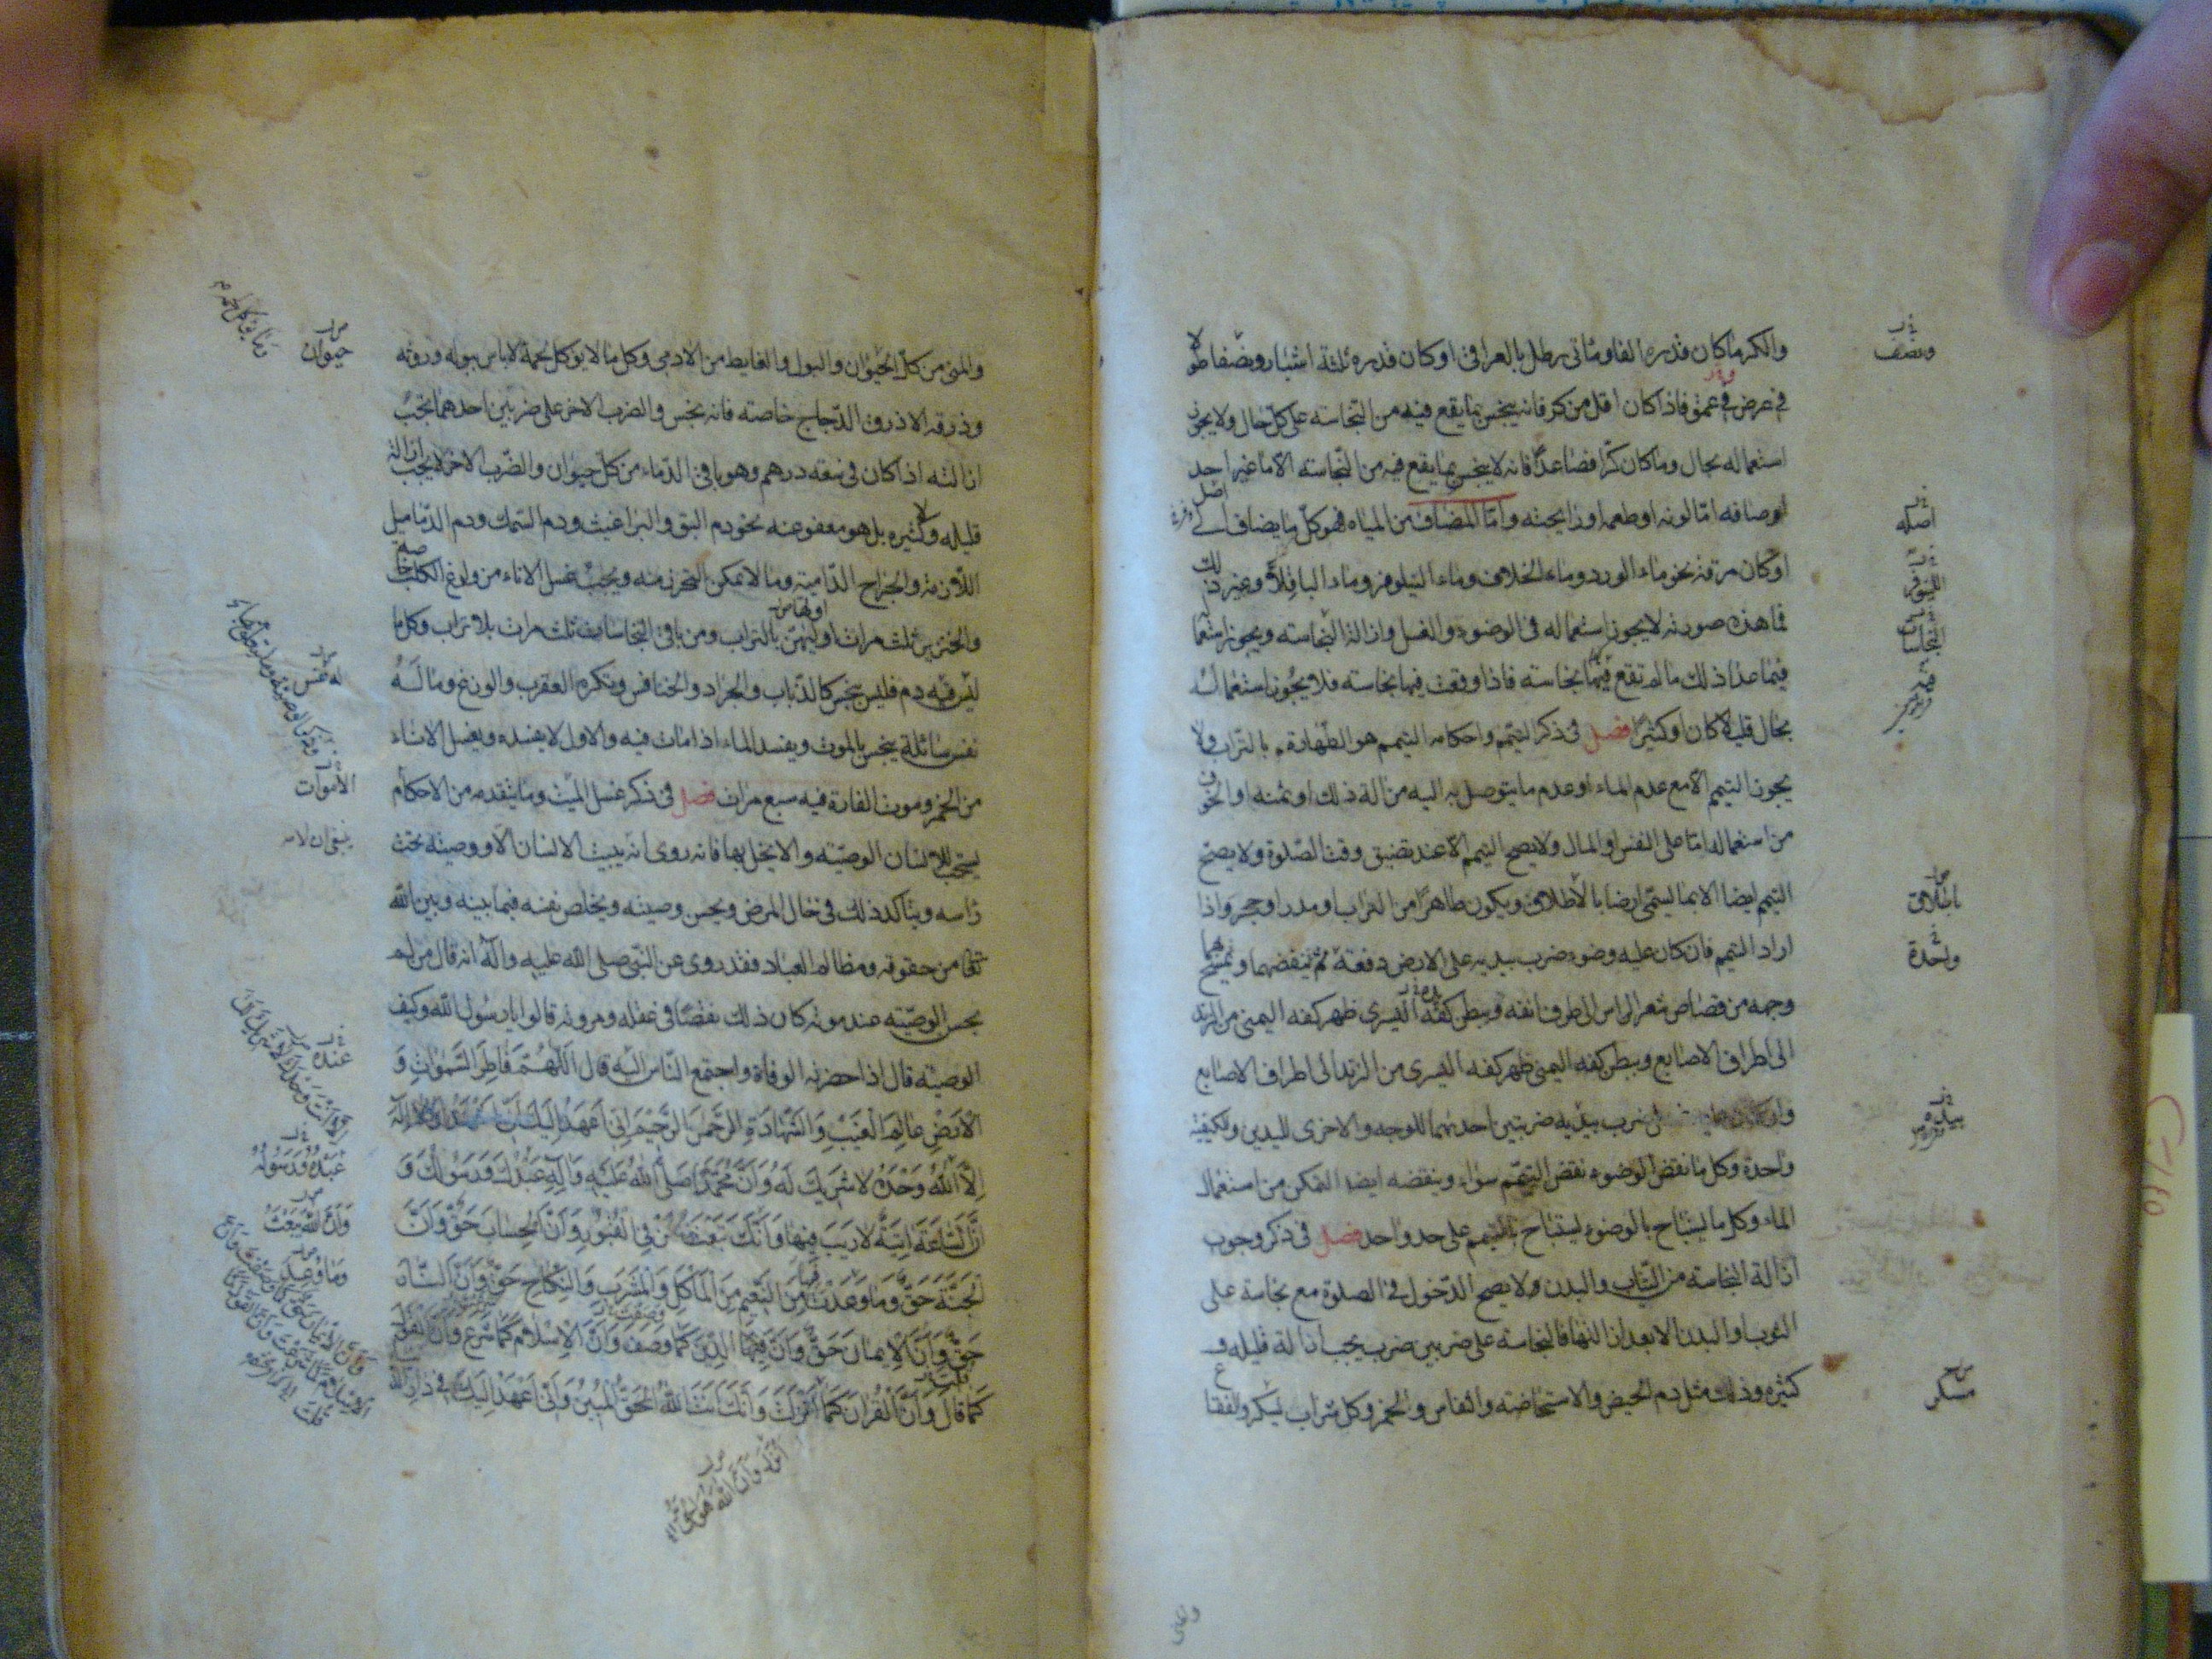 والكر ما كان قدره الفا ومائتى رطل بالعراقى او كان قدره ثلثة اشبار ونصفا طولا
فى عرض فى عمق فاذا كان اقل من كر فانه ينجس بما يقع فيه من النجاسة على كل حال ولا يجوز
استعماله بحال وما كان كرا فصاعدا فانه لا ينجس بما يقع فيه من النجاسة الا ما غير احد
اوصافه اما لونه او طعمه او رايحته واما المضاف من المياه فهو كل ما يضاف الى اصل
او كان مرقة نحو ماء الورد وماء الخلاف وماء النيلوفر وماء الباقلا وغير ذلك
فما هذه صورته لا يجوز استعماله فى الوضوء والغسل وازالة النجاسة ويجوز استعما
فيما عدا ذلك ما لم تقع فيها نجاسة فاذا وقعت فيها نجاسة فلا يجوز استعماله
بحال قليلا كان او كثيرا فصل فى ذكر التيمم واحكامه التيمم هو الطهارة بالتراب ولا
يجوز التيمم الا مع عدم الماء او عدم ما يتوصل به اليه من الة ذلك او ثمنه او الخوف
من استعماله اما على النفس او المال ولا يصح التيمم الا عند تضيق وقت الصلوة ولا يصح
التيمم ايضا الا بما يسمى ارضا بالاطلاق ويكون طاهرا من التراب او مدر او حجر واذا
اراد التيمم فان كان عليه وضوء ضرب بيديه على الارض دفعة ثم ينفضهما ويمسح بهما
وجهه من قصاص شعر الراس الى طرف انفه وببطن كفه اليسرى ظهر كفه اليمنى من الزند
الى اطراف الاصابع وببطن كفه اليمنى ظهر كفه اليسرى من الزند الى اطراف الاصابع
وان كان عليه غسل ضرب بيديه ضربتين احدهما للوجه والاخرى لليدين والكيفية
واحدة وكل ما نقض الوضوء نقض التيمم سواء وينقضه ايضا التمكن من استعمال
الماء وكل ما يستباح بالوضوء يستباح بالتيمم على حد واحد فصل فى ذكر وجوب
ازالة النجاسة من الثياب والبدن ولا يصح الدخول فى الصلوة مع نجاسة على
الثوب او البدن الا بعد ازالتها فالنجاسة على ضربين ضرب يجب ازالة قليله و
كثيره وذلك مثل دم الحيض والاستحاضة والنفاس والخمر وكل شراب يسكر والفقاع
ونصف
اصله
النيلوفر
النجاسات
باطلاق
واحدة
بيده
مسكر
والمنى من كل الحيوان والبول والغايط من الادمى وكل ما لا يوكل لحمه لا باس ببوله وروثه
وذرقه الا ذرق الدجاج خاصة فانه نجس والضرب الاخر على ضربين احدهما تجب
ازالته اذا كان فى سعة درهم وهو باقى الدماء من كل حيوان والضرب الاخر لا يجب ازالة
قليله ولا كثيره بل هو معفو عنه نحو دم البق والبراغيث ودم السمك ودم الدماميل
اللازمة والجراح الدامية وما لا يمكن التحرز منه ويجب غسل الاناء من ولوغ الكلب خاصة
والخنزير ثلث مرات اوليهن بالتراب ومن باقى النجاسات ثلث مرات بلا تراب وكل ما
ليس فيه دم فليس ينجس كالذباب والجراد والخنافس ويكره العقرب والوزغ وما له
نفس سائلة ينجس بالموت ويفسد الماء اذا مات فيه والاول لا يفسده ويغسل الاناء
من الخمر وموت الفارة فيه سبع مرات فصل فى ذكر غسل الميت وما يتقدمه من الاحكام
يستحب للانسان الوصية والا يخل بها فانه روى انه يبيت الانسان الا ووصيته تحت
راسه ويتاكد ذلك فى حال المرض ويحسن وصيته ويخلص نفسه فيما بينه وبين الله
تعالى من حقوقه ومظالم العباد فقد روى عن النبى صلى الله عليه واله انه قال من لم
يحسن الوصية عند موته كان ذلك نقصا فى عقله ومروته قالوا يا رسول الله وكيف
الوصية قال اذا حضرته الوفاة واجتمع الناس اليه قال اللهم فاطر السموات و
الارض عالم الغيب والشهادة الرحمن الرحيم انى اعهد اليك انى اشهد ان لا اله
الا الله وحده لا شريك له وان محمدا صلى الله عليه واله عبدك ورسولك و
ان الساعة اتية لا ريب فيها وانك تبعث من فى القبور وان الحساب حق وان
الجنة حق وما وعدت فيها من النعيم من الماكل والمشرب والنكاح حق وان النار
حق وان الايمان حق وان الدين كما وصف وان الاسلام كما شرع وان القول
كما قال وان القران كما انزلت وانك انت الله الحق المبين وانى اعهد اليك فى دار الد
حيوان
الاموات
عنده
عبده ورسوله
وان الله يبعث
وما وعد